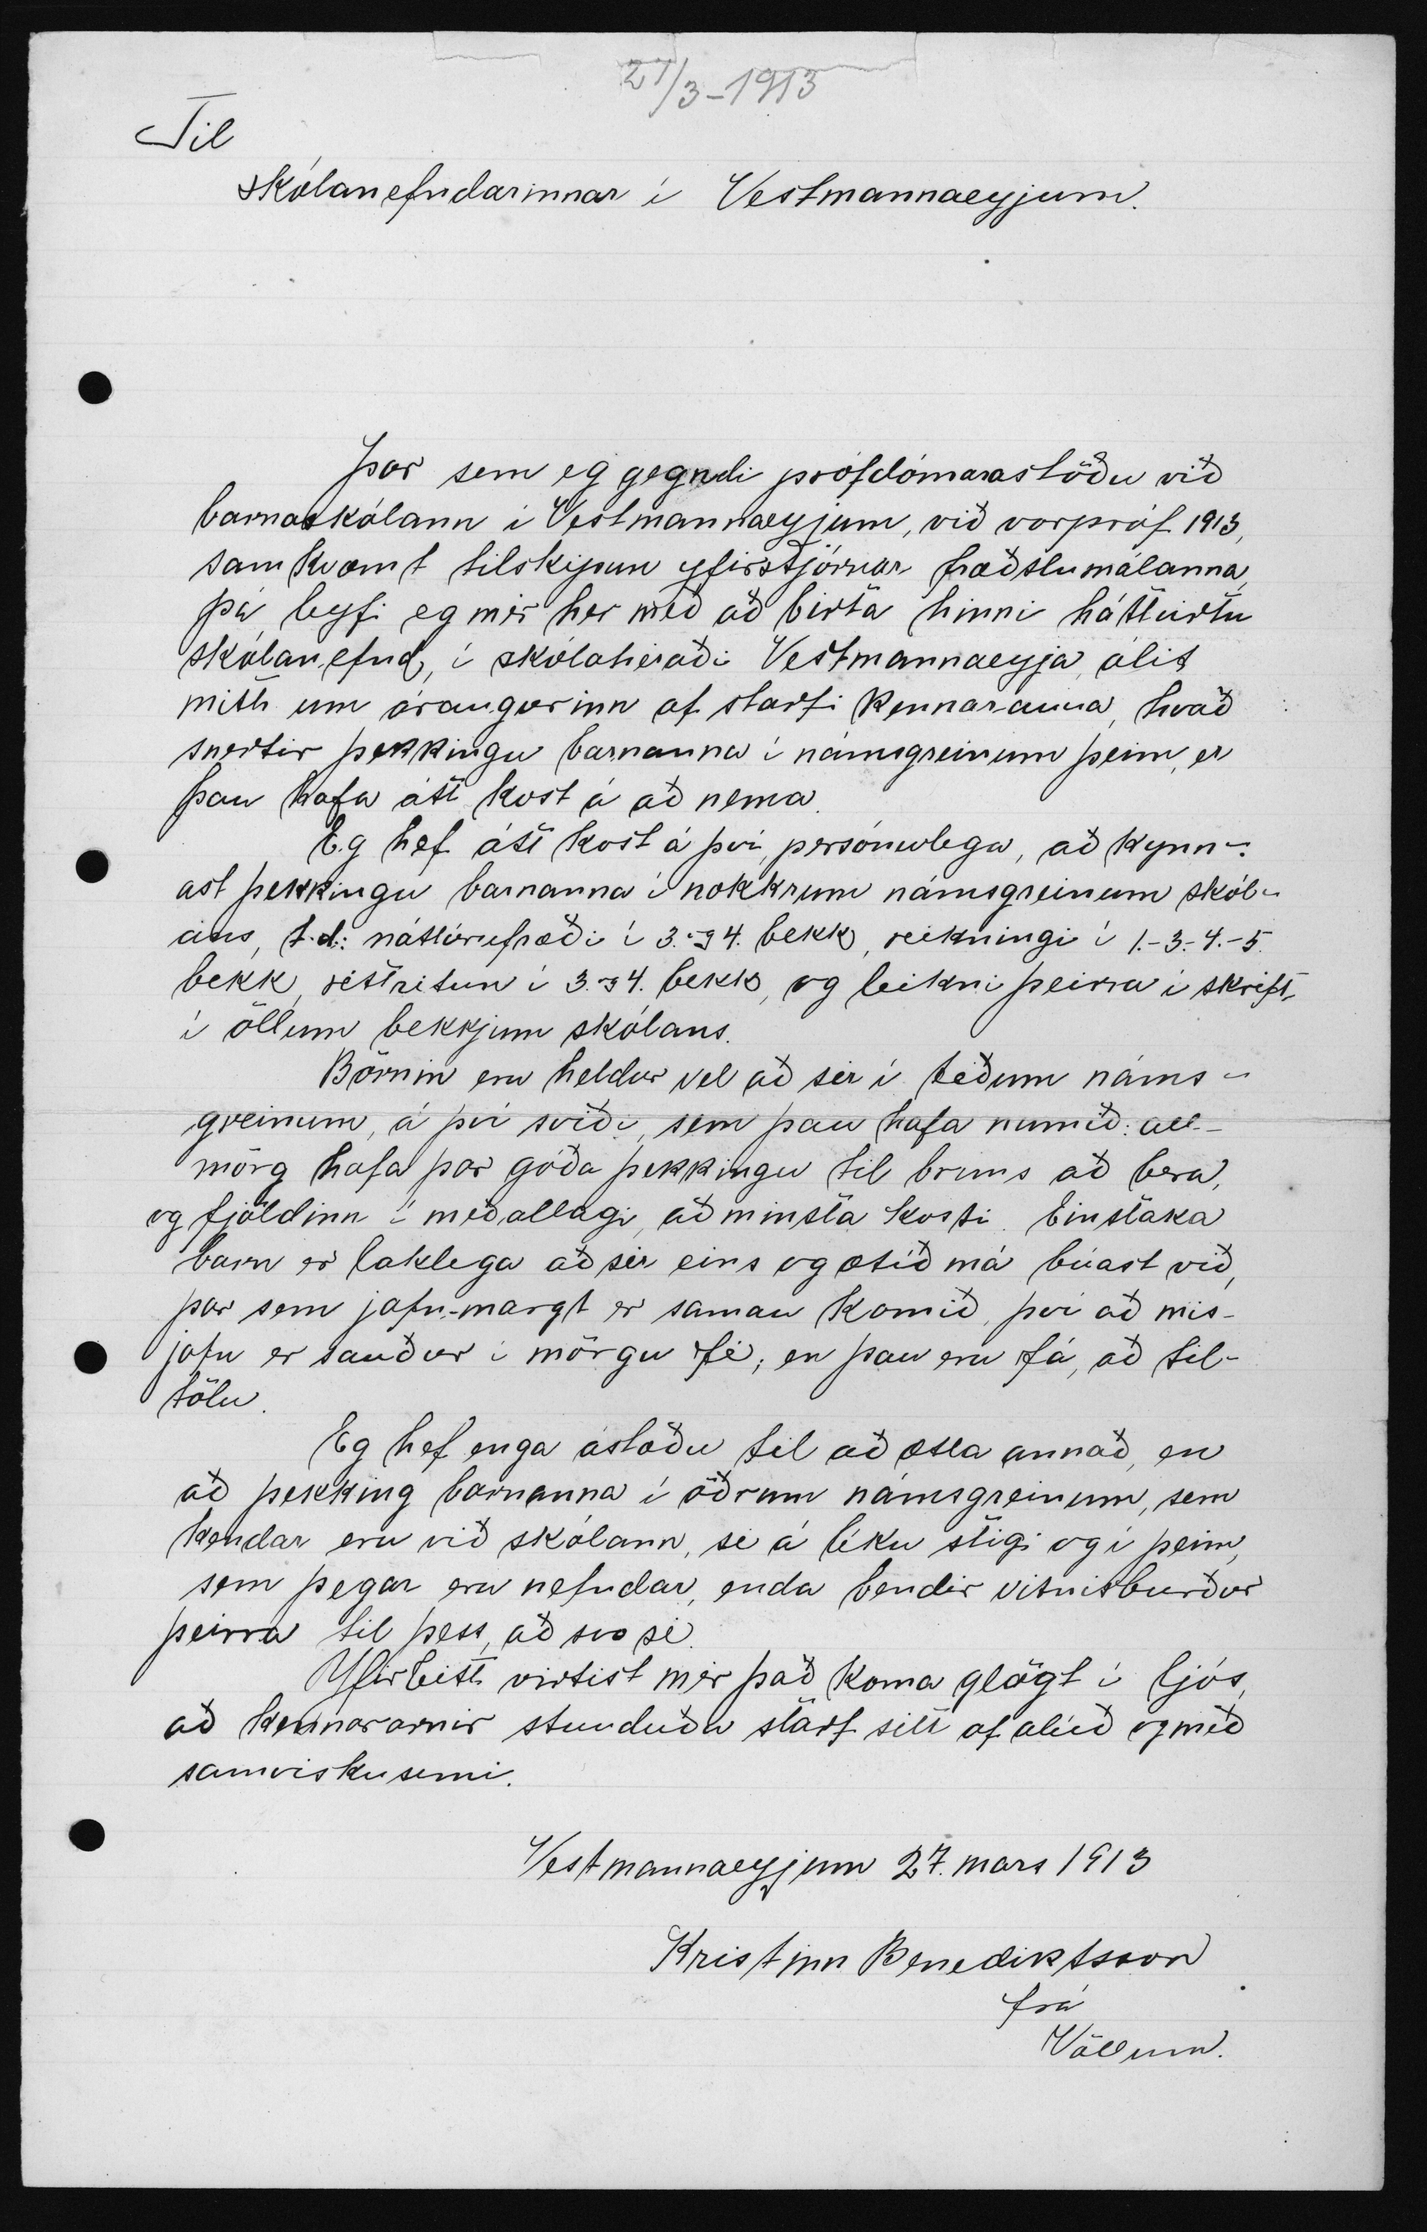 27/3-1913
Til
skólanefndarinnar í Vestmannaeyjum.
Þar sem eg gegndi prófdómarastöðu við
barnaskólann í Vestmannaeyjum, við vorpróf 1913,
samkvæmt tilskipun yfirstjórnar fræðslumálanna,
þá leyfi eg mér hér með að birta hinni háttvirtu
skólanefnd, í skólahéraði Vestmannaeyja, álit
mitt um árangurinn af starfi kennaranna, hvað
snertir þekkingu barnanna í námsgreinum þeim, er
þau hafa átt kost á að nema.
Eg hef átt kost á því, persónulega, að kynn-
ast þekkingu barnanna í nokkrum námsgreinum skól-
ans, t.d.: náttúrufræði í 3.-g 4. bekk, reikningi í 1.-3.-4.-5.
bekk, réttritun í 3.-g 4. bekk, og leikni þeirra í skrift,
í öllum bekkjum skólans.
Börnin eru heldur vel að sér í téðum náms-
greinum, á því sviði, sem þau hafa numið: all-
mörg hafa þar góða þekkingu til bruns að bera,
og fjöldinn í meðallagi, að minsta kosti. Einstaka
barn er laklega að sér eins og ætíð má búast við,
þar sem jafn-margt er saman komið, því að mis-
jafn er sauður í mörgu fé; en þau eru fá, að til-
tölu.
Eg hef enga ástæðu til að ætla annað, en
að þekking barnanna í öðrum námsgreinum, sem
kendar eru við skólann, sé á líku stigi og í þeim,
sem þegar eru nefndar, enda bendir vitnisburður
þeirra til þess, að svo sé.
Yfirleitt virtist mér það koma glögt í ljós,
að kennararnir stunduðu starf sitt af alúð og með
samviskusemi.
Vestmannaeyjum 27. mars 1913
Kristinn Benediktsson
frá
Völlum.